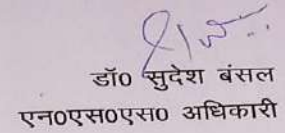 डॉ0 सुदेश बंसल
एन0एस0एस0 अधिकारी